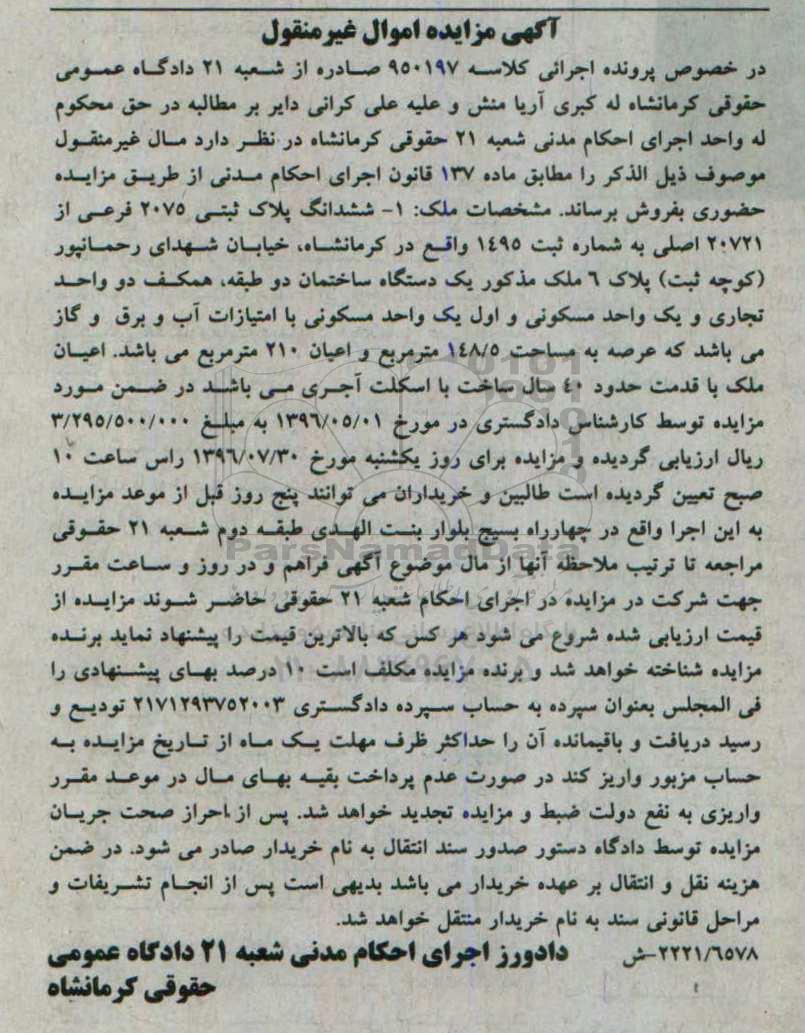 آگهی مزایده اموال غیرمنقول
در خصوص پرونده اجرائی کلاسه ۹۵۰۱۹۷ صادره از شعبه ۲۱ دادگاه عمومی
حقوقی کرمانشاه له کبری آریا منش و علیه علی کرانی دایر بر مطالبه در حق محکوم
له واحد اجرای احکام مدنی شعبه ۲۱ حقوقی کرمانشاه در نظر دارد مال غیرمنقول
موصوف ذیل الذکر را مطابق ماده ۱۳۷ قانون اجرای احکام مدنی از طریق مزایده
حضوری بفروش برساند. مشخصات ملک: ۱- ششدانگ پلاک ثبتی ۲۰۷۵ فرعی از
۲۰۷۲۱ اصلی به شماره ثبت ۱۴۹۵ واقع در کرمانشاه، خیابان شهدای رحمانپور
(کوچه ثبت) پلاک ۶ ملک مذکور یک دستگاه ساختمان دو طبقه، همکف دو واحد
تجاری و یک واحد مسکونی و اول یک واحد مسکونی با امتیازات آب و برق و گاز
می باشد که عرصه به مساحت ۱۴۸/۵ مترمربع و اعیان ۲۱۰ مترمربع می باشد. اعیان
ملک با قدمت حدود ۴۰ سال ساخت با اسکلت آجری می باشد در ضمن مورد
مزایده توسط کارشناس دادگستری در مورخ ۱۳۹۶/۰۵/۰۱ به مبلغ ۳/۲۹۵/۵۰۰/۰۰۰
ریال ارزیابی گردیده و مزایده برای روز یکشنبه مورخ ۱۳۹۶/۰۷/۳۰ راس ساعت ۱۰
صبح تعیین گردیده است طالبین و خریداران می توانند پنج روز قبل از موعد مزایده
به این اجرا واقع در چهارراه بسیج بلوار بنت الهدی طبقه دوم شعبه ۲۱ حقوقی
مراجعه تا ترتیب ملاحظه آنها از مال موضوع آگهی فراهم و در روز و ساعت مقرر
جهت شرکت در مزایده در اجرای احکام شعبه ۲۱ حقوقی حاضر شوند مزایده از
قیمت ارزیابی شده شروع می شود هر کس که بالاترین قیمت را پیشنهاد نماید برنده
مزایده شناخته خواهد شد و برنده مزایده مکلف است ۱۰ درصد بهای پیشنهادی را
فی المجلس بعنوان سپرده به حساب سپرده دادگستری ۲۱۷۱۲۹۳۷۵۲۰۰۳ تودیع و
رسید دریافت و باقیمانده آن را حداکثر ظرف مهلت یک ماه از تاریخ مزایده به
حساب مزبور واریز کند در صورت عدم پرداخت بقیه بهای مال در موعد مقرر
واریزی به نفع دولت ضبط و مزایده تجدید خواهد شد. پس از احراز صحت جریان
مزایده توسط دادگاه دستور صدور سند انتقال به نام خریدار صادر می شود. در ضمن
هزینه نقل و انتقال بر عهده خریدار می باشد بدیهی است پس از انجام تشریفات و
مراحل قانونی سند به نام خریدار منتقل خواهد شد.
۲۲۲۱/۶۵۷۸-ش دادورز اجرای احکام مدنی شعبه ۲۱ دادگاه عمومی
حقوقی کرمانشاه
ParsNamadData